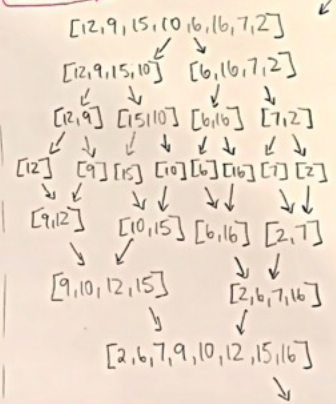 [12,9,15,10,6,16,7,2]
[12,9,15,10] [6,16,7,2]
[12,9] [15,10] [6,16] [7,2]
[12] [9] [15] [10] [6] [16] [7] [2]
[9,12] [10,15] [6,16] [2,7]
[9,10,12,15] [2,6,7,16]
[2,6,7,9,10,12,15,16]